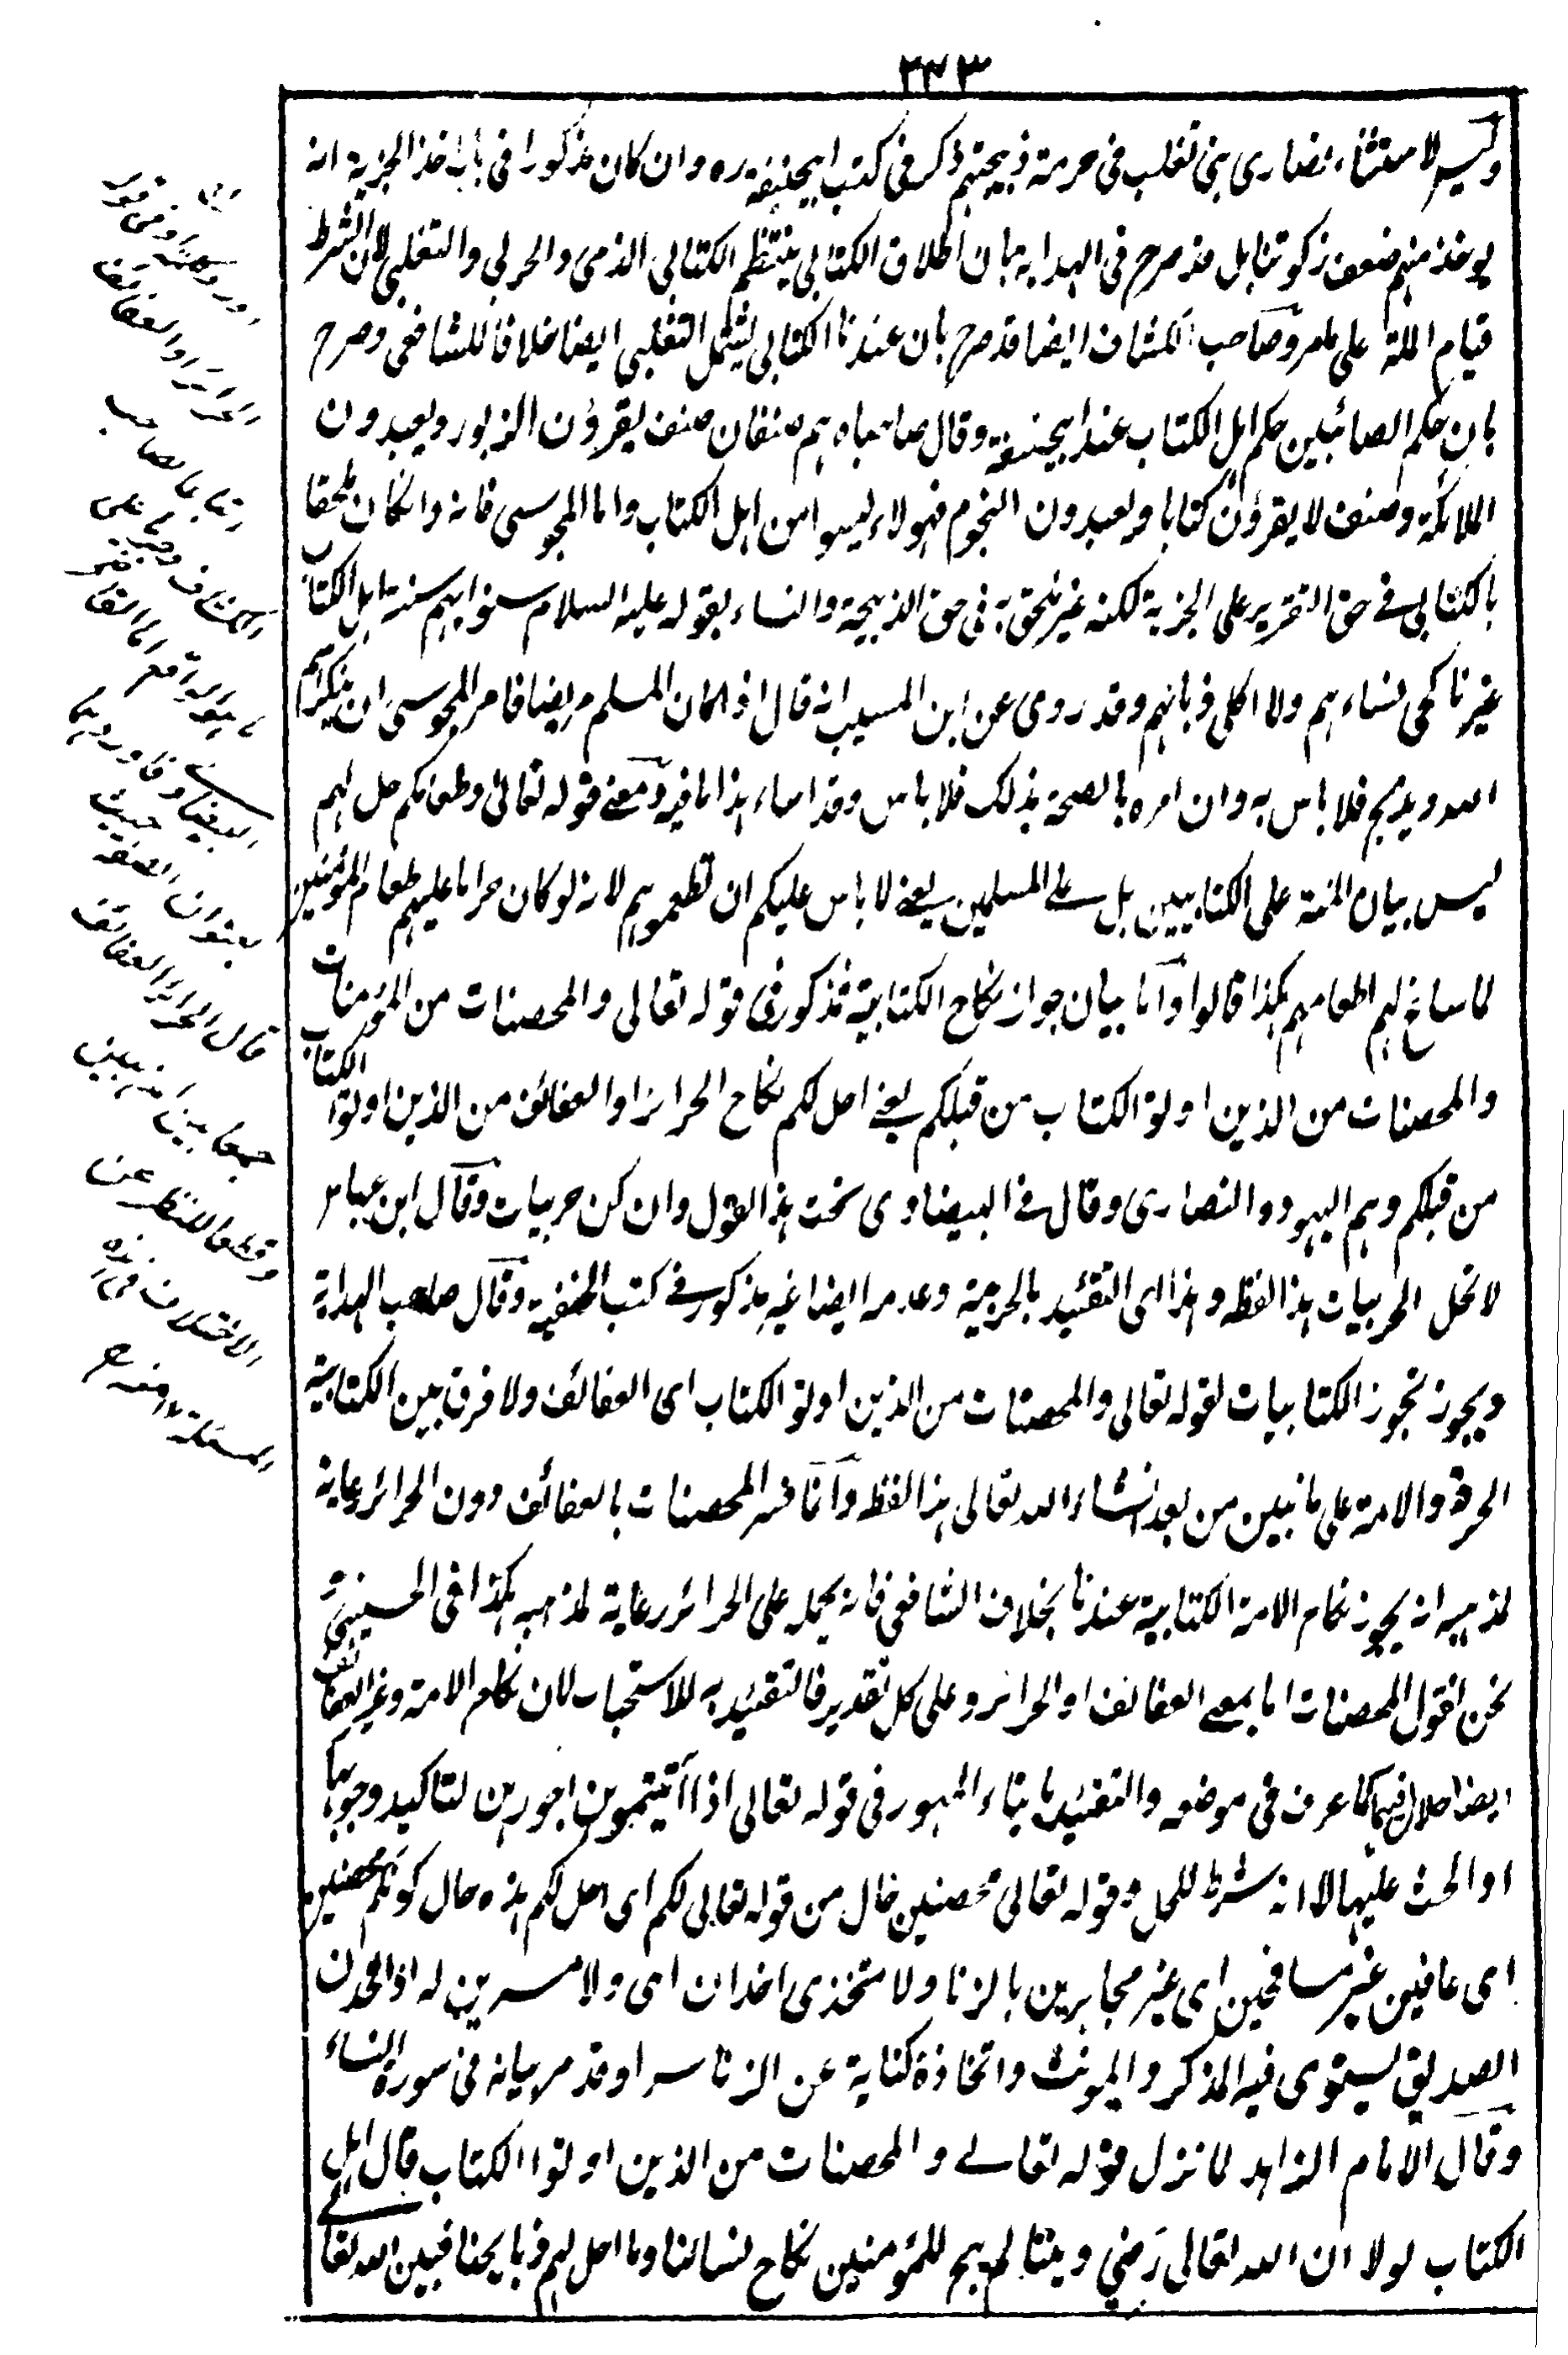 ٣٣٣
وليس لاستثناء نصارى بنى تغلب فى حرمة ذبيحتهم ذكر فى كتب ابيحنيفة ره وان كان مذكورا فى باب اخذ الجزية انه
يوخذ منهم ضعف زكوتنا بل قد صرح فى الهداية بان اطلاق الكتابى ينتظم الكتابى الذمى والحربى والتغلبى لان الشرط
قيام الملة على ما مر وصاحب الكشاف ايضا قد صرح بان عندنا الكتابى يشمل التغلبى ايضا خلافا للشافعى وصرح
بان حكم الصائبين حكم اهل الكتاب عند ابيحنيفة وقال صاحباه هم صنفان صنف يقرؤن الزبور ويعبدون
الملائكة وصنف لا يقرؤن كتابا ويعبدون النجوم فهولاء ليسوا من اهل الكتاب واما المجوسى فانه وانكان ملحقا
بالكتابى فے حق التقرير على الجزية لكنه غير ملحق به فى حق الذبيحة والنساء بقوله عليه السلام سنوا بهم سنة اهل الكتاب
غير ناكحى نساءهم ولا اكلى ذبائحهم وقد روى عن ابن المسيب انه قال اذا كان المسلم مريضا فامر المجوسى ان يذكر اسم
الله ويذبح فلا باس به وان امره بالصحة بذلك فلا باس وقد اساء هذا ما فيه ومعنے قوله تعالى وطعامكم حل لهم
ليس بيان المنة على الكتابيين بل علے المسلمين يعنے لا باس عليكم ان تطعموهم لانه لو كان حراما عليهم طعام المؤمنين
لما ساغ لهم اطعامهم هكذا قالوا واما بيان جواز نكاح الكتابية فمذكور فى قوله تعالى والمحصنات من المؤمنات
والمحصنات من الذين اوتوا الكتاب من قبلكم يعنے احل لكم نكاح الحرائر او العفائف من الذين اوتوا الكتاب
من قبلكم وهم اليهود والنصارى وقال فے البيضاوى تحت هذا القول وان كن حربيات وقال ابن عباس
لا تحل الحربيات هذا لفظه وهذا اى التقئيد بالحربية وعدمه ايضا غير مذكور فے كتب الحنفية وقال صاحب الهداية
ويجوز تجوز الكتابيات لقوله تعالى والمحصنات من الذين اوتوا الكتاب اى العفائف ولا فرق بين الكتابية
الحرة والامة على ما نبين من بعد انشاء الله تعالى هذا لفظه وانما فسر المحصنات بالعفائف دون الحرائر رعاية
لمذهبه انه يجوز نكاح الامة الكتابية عندنا بخلاف الشافعى فانه يحمله على الحرائر رعاية لمذهبه هكذا فى الحسينى و
نحن نقول المحصنات اما بمعنے العفائف او الحرائر وعلى كل تقدير فالتقئيد به للاستحباب لان نكاح الامة وغير العفائف
ايضا حلال فيها كما عرف فى موضعه والتقئيد بايتاء المهور فى قوله تعالى اذا آتيتموهن اجورهن لتاكيد وجوبها
او الحث عليها لا انه شرط للحل وقوله تعالى محصنين حال من قوله تعالى لكم اى احل لكم هذه حال كونكم محصنين
اى عافين غير مسافحين اى غير مجاهرين بالزنا ولا متخذى اخدان اى ولا مسرين له اذ الخدن
الصديق يستوى فيه المذكر والمونث واتخاذه كناية عن الزنا سرا وقد مر بيانه فى سورة النساء
وقال الامام الزاهد لما نزل قوله تعالے والمحصنات من الذين اوتوا الكتاب قال اهل
الكتاب لولا ان الله تعالى رضي ديننا لم يبح للمؤمنين نكاح نسائنا وما احل لهم ذبايحنا فبين الله تعالے
او العفائف
الحرائر
صاحب
الكشاف
البيضاوى
حيث
قال الحرائر العفائف
جمعا بين المذهبين
وقطعا للنظر عن
الاختلاف فى هذه
المسئلة